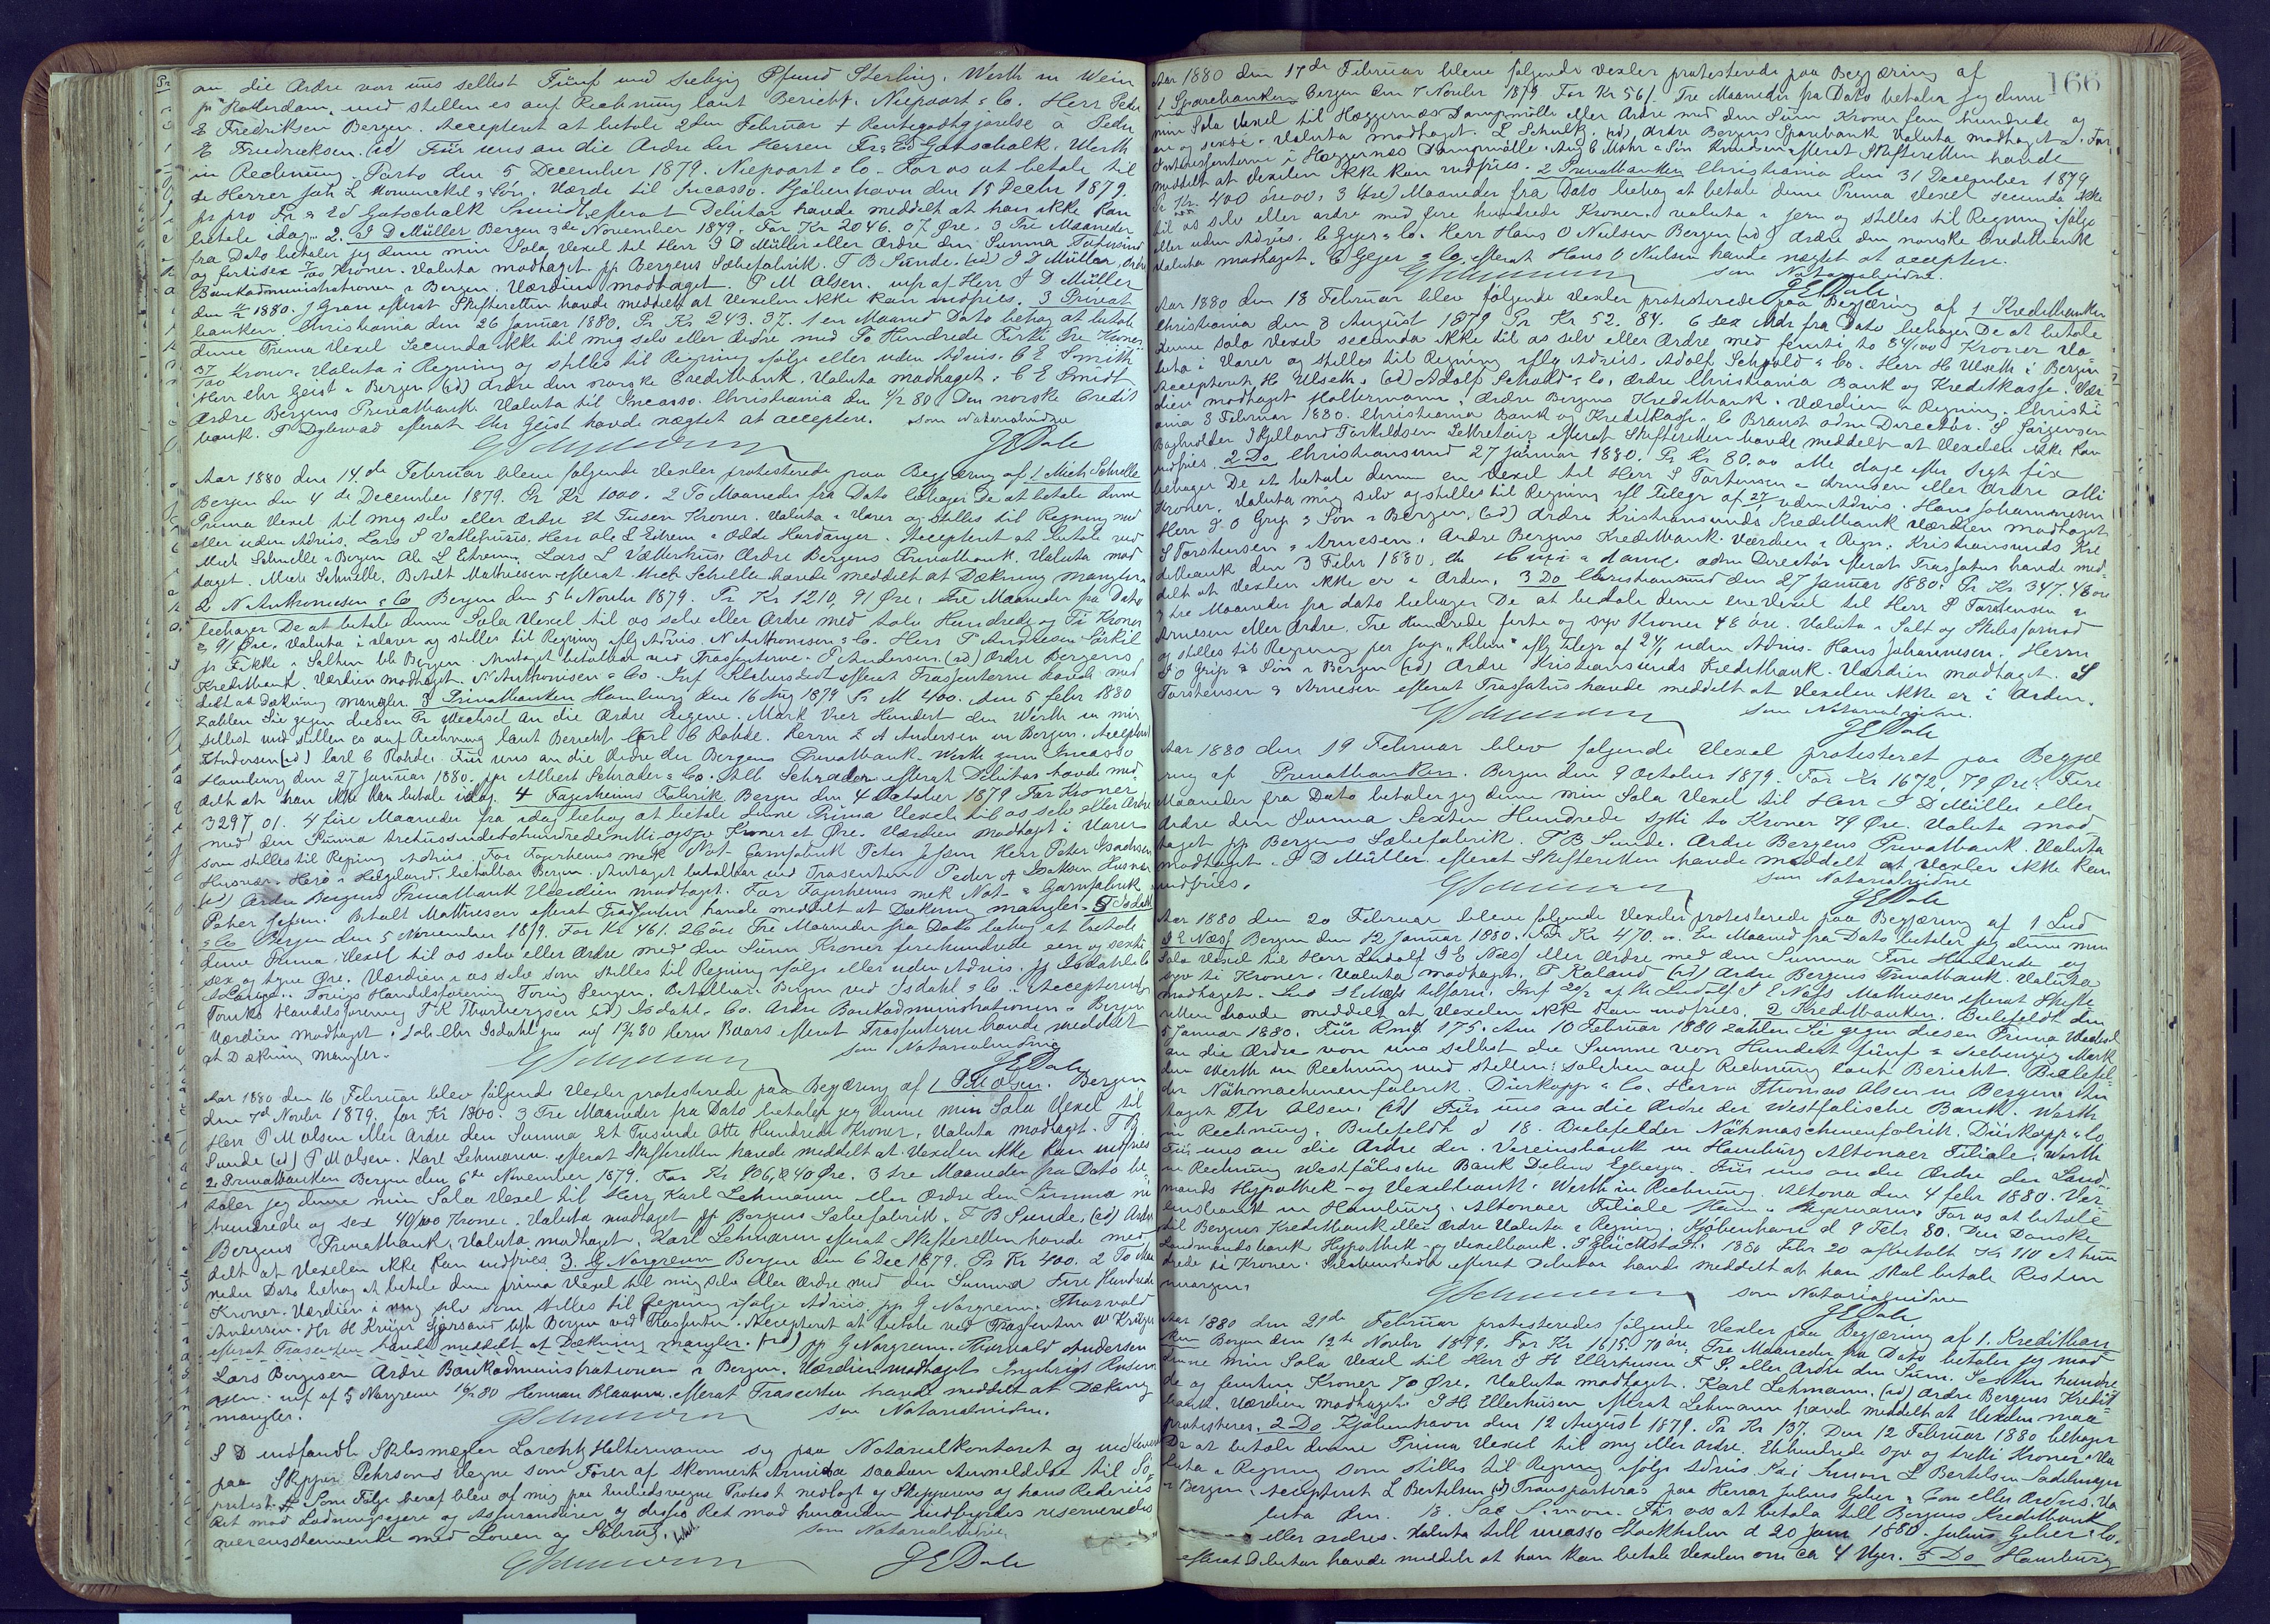 an die Ordre von uns selbst Fünf und Siebzig Pfund Sterling. Werth in Wein
pr Rotterdam, und stellen es auf Rechnung laut Bericht. Niepoort & Co. Herr Peder
E Fredriksen Bergen. Accepteret at betale 2den Februar + Rentegodtgjørelse à Peder
E Friedricksen. (id) Für uns an die Ordre der Herren Fr & Ed Gotschalk. Werth
in Rechnung. Porto den 5 December 1879. Niepoort & Co. For os at betale til
de Herrer Joh L Mowinckel & Søn. Værdi til Incasso. Kjøbenhavn den 15 Decbr 1879.
pr pro Fr & Ed Gotschalk Smidt, efterat Debitor havde meddelt at han ikke kan
betale idag. 2. J D Müller Bergen 3de November 1879. For Kr 2046.07 Øre. 3 Tre Maaneder
fra Dato betaler jeg denne min Sola Vexel til Herr J D Müller eller Ordre den Summa Totusind
og fortisex 7/100 Kroner. Valuta modtaget. pp Bergens Sæbefabrik. T B Sunde. (id) J D Müller, Ordre
Bankadministrationen i Bergen. Værdien modtaget. P M Olsen. af Herr J D Müller
den 1880. J Gran efterat Skifteretten havde meddelt at Vexelen ikke kan indfries. 3 Privat
banken. Christiania den 26 Januar 1880. Pr Kr 243.37. 1 en Maaned Dato behag at betale
denne Prima Vexel Secunda ikke til mig selv eller Ordre med To Hundrede Forti Tre Kroner
37/100 Kroner. Valuta i Regning og stilles til Regning ifølge eller uden Advis. C E Smith
Herr Chr Geist i Bergen (id) Ordre den norske Creditbank. Valuta modtaget. C E Smidt
Ordre Bergens Privatbank. Valuta til Incasso. Christiania den 4/2 80. Den norske Credit
bank. efterat Chr Geist havde nægtet at acceptere. som Notarialvidne
J E Dale
Aar 1880 den 14de Februar bleve følgende Vexler protesterede paa Begjæring af 1 Mich Schnelle
Bergen den 4de December 1879. Pr Kr 1000. 2 To Maaneder fra Dato behager De at betale denne
Prima Vexel til mig selv eller Ordre Et Tusen Kroner. Valuta i Varer og stilles til Regning med
eller uden Advis. Lars S Vallehuus. Herr Ole L Eitrem i Odde Hardanger. Accepteret at betale ved
Mich Schnelle i Bergen Ole L Eitrem. Lars S Ordre Bergens Privatbank. Valuta mod
taget. Mich Schnelle. Betalt Mathiesen efterat Mich Schelle havde meddelt at Dækning mangler.
2 N Anthonisen & Co Bergen den 5 Novbr 1879. Pr Kr 1210,91 Øre. Tre Maaneder fra Dato
behager De at betale denne Sola Vexel til os selv eller Ordre med tolv Hundrede og Ti Kroner
& 91 Øre. Valuta i Varer og stilles til Regning iflg Advis. N Anthonisen & Co. Herr P Andersen
i Salten bb Bergen. Antaget betalbar ved Trassenterne. P Andersen. (id) Ordre Bergens
Kreditbank. Værdien modtaget N Anthonisen & Co. efterat Trassenterne havde med
delt at Dækning mangler. 3 Privatbanken Hamburg den 16 Aug 1879 Pr M 400. Am 5 Febr 1880
zahlen Sie gegen diesen Pr Wechsel an die Ordre Eigene. Mark Vier Hundert den Werth in mir
selbst und stellen es auf Rechnung laut Bericht. Carl C Rohde. Herrn Z A Andersen in Bergen. Acceptiert
Z Andersen (id) Carl C Rohde. Für uns an die Ordre der Bergens Privatbank. Werth zum Incasso
Hamburg den 27 Januar 1880. ppr Albert Schrader & Co. Alb Schrader efterat Debitor havde med
delt at han ikke kan betale idag. 4 Fagerheims Fabrik Bergen den 4 October 1879 For Kroner
3297.01. 4 fire Maaneder fra idag behag at betale denne Prima Vexel til os selv eller Ordre
med den Summa Tretusindetohundrede nitti og syv Kroner et Øre. Værdien modtaget i Varer
som stilles til Regning Advis. For Fagerheims mek Not- Garnfabrik Peter Jebsen Herr Peter Isachsen
Husvær, Herø i Helgeland, betalbar Bergen. Antaget betalbar ved Trasenten Peder A Isaksen Husvær
(id) Ordre Bergens Privatbank Værdien modtaget. For Fagerheims mek Not- & Garnfabrik
Peter Jebsen. Betalt Mathiesen efterat Trassenten havde meddelt at Dækning mangler. 5 Isdahl
& Co Bergen den 5 November 1879. For Kr 461.26 øre Tre Maaneder fra Dato behag at betale
denne Prima Vexel til os selv eller Ordre med den Summa Kroner firehundrede een og sexti
sex og tyve Øre. Værdien i os selv som stilles til Regning ifølge eller uden Advis. pp Isdahl & Co
Handelsforening Bergen. Betalbar i Bergen ved Isdahl & Co. Accepteret
Handelsforening T K Thorbergsen (id) Isdahl & Co. Ordre Bankadministrationen i Bergen
Værdien modtaget Isdahl efterat Trassenterne havde meddelt
at Dækning mangler.
som Notarialvidne
J E Dale
Aar 1880 den 16 Februar blev følgende Vexler protesterede paa Begjæring af 1 P M Olsen. Bergen
den 4de Novbr 1879, for Kr 1800. 3 Tre Maaneder fra Dato betaler jeg denne min Sola Vexel til
Herr P M Olsen eller Ordre den Summa Et Tusinde Otte Hundrede Kroner. Valuta modtaget. T B
Sunde (id) P M Olsen. Karl Lehmann. efterat Skifteretten havde meddelt at Vexelen ikke kan indfries
2. Privatbanken Bergen den 6te November 1879. For Kr 906,40 Øre. 3 tre Maaneder fra Dato be
taler jeg denne min Sola Vexel til Herr Karl Lehmann eller Ordre den Summa ni
hundrede og sex 40/100 Kroner. Valuta modtaget pp Bergens Sæbefabrik. T B Sunde. (id) Ordre
Bergens Privatbank. Valuta modtaget. Karl Lehmann efterat Skifteretten havde med
delt at Vexelen ikke kan indfries. 3. G Norgrenn Bergen den 6 Dec 1879. Pr Kr 400. 2 To Maa
neder Dato behag at betale denne prima Vexel til mig selv eller Ordre med den Summa Fire Hundrede
Kroner. Værdien i mig selv som stilles til Regning ifølge Advis. pp G Norgrenn. Thorvald
Andersen. Hr H Krüger Bergen ved Trassenten. Accepteret at betale ved Trassenten H Krüger
efterat Trasenten havde meddelt at Dækning mangler. (id) pp G Norgrenn. Thorvald Andersen
Lars Børgesen Ordre Bankadministrationen i Bergen. Værdien modtaget
af G Norgrenn 16/2 80 efterat Trasenten havde meddelt at Dækning
mangler.
som Notarialvidne.
S D indfandt Skibsmægler Lorentz Holtermann sig paa Notarialkontoret og
paa Skipper Pehrsons Vegne som Fører af Skonnert Armida saadan Anmeldelse til Sø-
protest. Som Følge heraf blev af mig paa Embedsvegne Protest nedlagt og Skipperens og hans Rederies
Ret mod Ladningseiere og Assurandører og disses Ret mod hinanden indbyrdes reserveredes
overensstemmende med Loven og Søbrug.
som Notarialvidne
J E Dale
166
Aar 1880 den 17de Februar bleve følgende Vexler protesterede paa Begjæring af
1 Sparebanken Bergen den 7 Novbr 1879. For Kr 561. Tre Maaneder fra Dato betaler jeg denne
min Sola Vexel til Hæggernæs Dampmølle eller Ordre med den Sum Kroner fem hundrede og
en og sexti. Valuta modtaget. L Schulz. (id) Ordre Bergens Sparebank Valuta modtaget. For
Interessenterne i Hæggernæs Dampmølle. Aug C Mohr & Søn Knudsen efterat Skifteretten havde
meddelt at Vexelen ikke kan indfries. 2 Privatbanken Christiania den 31 December 1879
Pr Kr. 400 øre 00. 3 (tre) Maaneder fra Dato behag at betale denne Prima Vexel secunda ikke
til os selv eller ordre med fire hundrede Kroner. Valuta i Jern og stilles til Regning ifølge
eller uden Advis. C Geijer & Co. Herr Hans O Nielsen Bergen (id) Ordre den norske Creditbank
Valuta modtaget. C Geijer & Co. efterat Hans O Nielsen havde nægtet at acceptere.
som Notarialvidne.
J E Dale
Aar 1880 den 18 Februar blev følgende Vexler protesterede paa Begjæring af 1 Kreditbanken
Christiania den 8 August 1879 Pr Kr 52.84. 6 sex Mdr fra Dato behager De at betale
denne Sola Vexel secunda ikke til os selv eller Ordre med femti to 84/100 Kroner Va
luta i Varer og stilles til Regning iflg Advis. Adolf Schjold & Co. Herr H Ulseth i Bergen
Accepteret H Ulseth. (id) Adolf Schjold & Co. Ordre Christiania Bank og Kreditkasse. Vær
dien modtaget Holtermann. Ordre Bergens Kreditbank. Værdien i Regning. Christi
ania 3 Februar 1880. Christiania Bank og Kreditkasse. C Brandt adm Director. S Jørgensen
Bogholder J Kjelland Torkildsen Sekretair efterat Skifteretten havde meddelt at Vexelen ikke kan
indfries. 2 Do Christianssund 27 Januar 1880. Pr Kr 80.00 otte dage efter Sigt
behager De at betale denne en Vexel til Herr S Torstensen & Arnesen eller Ordre otti
Kroner. Valuta mig selv og stilles til Regning ifl Telegr af 24/1 uden Advis. Hans Johannesen
Herr J O Grip & Søn i Bergen. (id) Ordre Kristianssunds Kreditbank Værdien modtaget
S Torstensen & Arnesen. Ordre Bergens Kreditbank. Værdien i Regn. Kristianssunds Kre
ditbank den 3 Febr 1880. adm Direktør efterat Trassatus havde med
delt at Vexlen ikke er i Orden. 3 Do Christianssund den 27 Januar 1880. Pr Kr. 347.48 øre
3 tre Maaneder fra dato behager De at betale denne ene Vexel til Herr S Torstensen &
Arnesen eller Ordre. Tre Hundrede førti og syv Kroner 48 øre. Valuta i Salt og
og stilles til Regning per Jagt iflg Telegr af 24/1 uden Advis. Hans Johannesen. Herrn
J O Grip & Søn i Bergen (id) Ordre Kristianssunds Kreditbank. Værdien modtaget. S
Torstensen & Arnesen efterat Trassatus havde meddelt at Vexelen ikke er i Orden.
som Notarialvidne.
J E Dale
Aar 1880 den 19 Februar blev følgende Vexel protesteret paa Begjæ
ring af Privatbanken. Bergen den 9 October 1879. For Kr 1672,79 Øre. Fire
Maaneder fra Dato betaler jeg denne min Sola Vexel til Herr J D Müller eller
Ordre den Summa Sexten Hundrede sytti to Kroner 79 Øre. Valuta mod
taget pp Bergens Sæbefabrik. T B Sunde. Ordre Bergens Privatbank. Valuta
modtaget. J D Müller efterat Skifteretten havde meddelt at Vexler ikke kan
indfries.
som Notarialvidne
J E Dale
Aar 1880 den 20 Februar bleve følgende Vexler protesterede paa Begjæring af 1 Lud
J E Næss Bergen den 12 Januar 1880. For Kr 470.00. En Maaned fra Dato betaler jeg denne min
Sola Vexel til Herr Ludolf J E Næss eller Ordre med den Summa Fire Hundrede og
syv ti Kroner. Valuta modtaget. T Roland (id) Ordre Bergens Privatbank. Valuta
modtaget. Lud J E Næss 20/2 af Hr Ludolf J E Næss Mathiesen efterat Skifte
retten havde meddelt at Vexelen ikk kan indfries. 2 Kreditbanken. Bielefeldt den
5 Januar 1880. Für Rmk 175. Am 10 Februar 1880 zahlen Sie gegen diesen Prima Wechsel
an die Ordre von uns selbst die Summe von Hundert fünf & Siebenzig Mark
den Werth in Rechnung und stellen solchen auf Rechnung laut Bericht. Bielefel
der Nähmachinenfabrik. Dürkopp & Co. Herrn Thomas Olsen in Bergen. An
taget Th Olsen. (id) Für uns an die Ordre der Westfälische Bank. Werth
in Rechnung. Bielefeldt d 18. Bielefelder Nähmaschinenfabrik. Dürkopp & Co
Für uns an die Ordre der Vereinsbank in Hamburg Altonaer Filiale. Werth
in Rechnung Westfälische Bank Für uns an die Ordre der Land
mands Hypothek- og Vexelbank. Werth in Rechnung. Altona den 4 Febr 1880. Ver
einsbank in Hamburg. Altonaer Filiale For os at betale
til Bergens Kreditbank eller Ordre Valuta i Regning. Kjøbenhavn d 9 Febr 80. Den Danske
Landmandsbank Hypothek- og Vexelbank. Glückstadt. 1880 Febr 20 afbetalt Kr 110 et hun
drede ti Kroner. efterat Debitor havde meddelt at han skal betale Resten
imorgen.
som Notarialvidne
J E Dale
Aar 1880 den 21de Februar protesteredes følgende Vexler paa Begjæring af 1. Kreditban
ken Bergen den 12te Novbr 1879. For Kr 1615.70 øre. Tre Maaneder fra Dato betaler jeg mod
denne min Sola Vexel til Herr J H Ellerhusen F. S. eller Ordre den Sum. Sexten hundre
de og femten Kroner 70 Øre. Valuta modtaget. Karl Lehmann. (id) Ordre Bergens Kredit
bank. Værdien modtaget. J H Ellerhusen efterat Lehmann havde meddelt at Vexelen maa
protesteres. 2 Do Kjøbenhavn den 12 August 1879. Pr Kr 137. Den 12 Februar 1880 behager
De at betale denne Prima Vexel til mig eller Ordre. Ethundrede syv og tretti Kroner. Va
luta i Regning som stilles til Regning ifølge Advis. Simon L Bertelsen Sadelmager
i Bergen. Accepteret L Bertelsen (id) Transporteras paa Herrar Julius Geber & Com eller Ordres. Va
luta den. 18. Simon. För oss at betala till Bergens Kreditbank
eller ordres. Valuta till incasso Stockholm d 20 Jan 1880. Julius Geber & Co.
efterat Debitor havde meddelt at han kan betale Vexelen om ca 4 Uger. 3 Do Hamburg